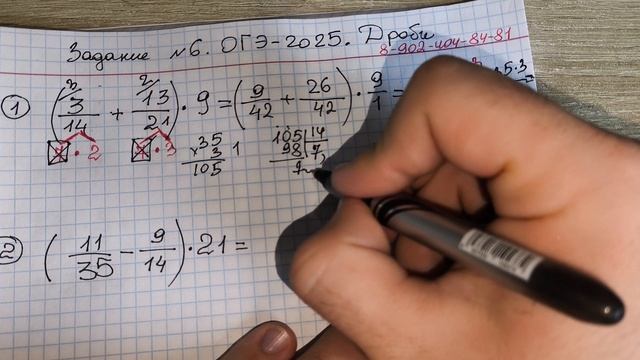 Задание №6. ОГЭ-2025. Дроби
8-902-404-84-81
1 (3/14 + 13/21) · 9 = (9/42 + 26/42) · 9/1 =
3 2
· 2 · 3
×35
3
105
1
105 14
98 7
7
2 (11/35 - 9/14) · 21 =
5·3